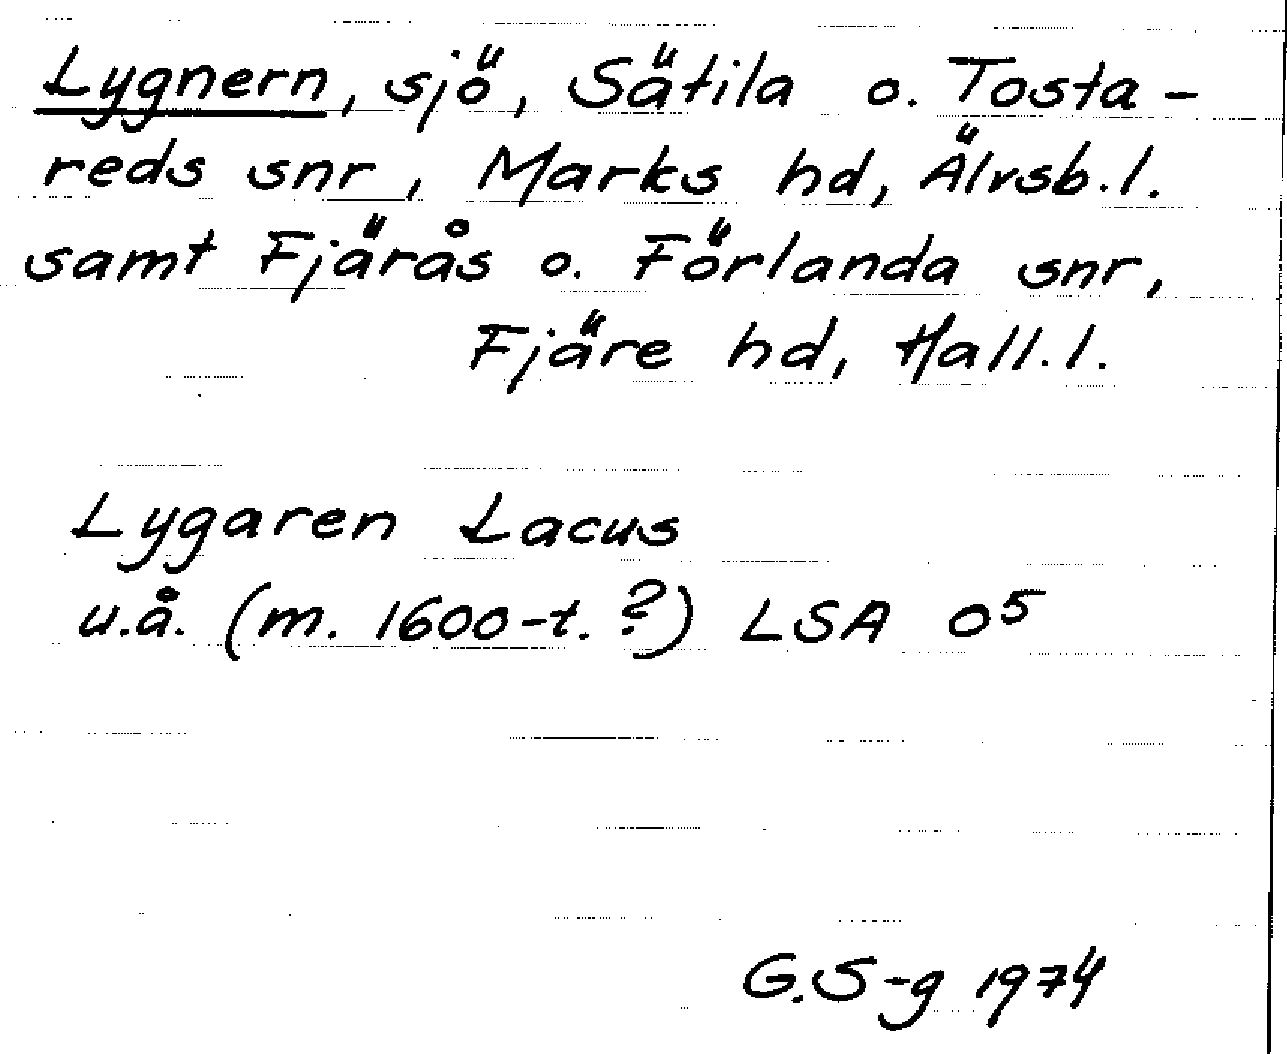 Lygnern, sjö, Sätila o. Tosta-
reds snr, Marks hd, Älvsb.l.
samt Fjärås o. Förlanda snr,
Fjäre hd, Hall.l.
Lygaren Lacus
u.å. (m. 1600-t.?) LSA O⁵
G.S-g 1974